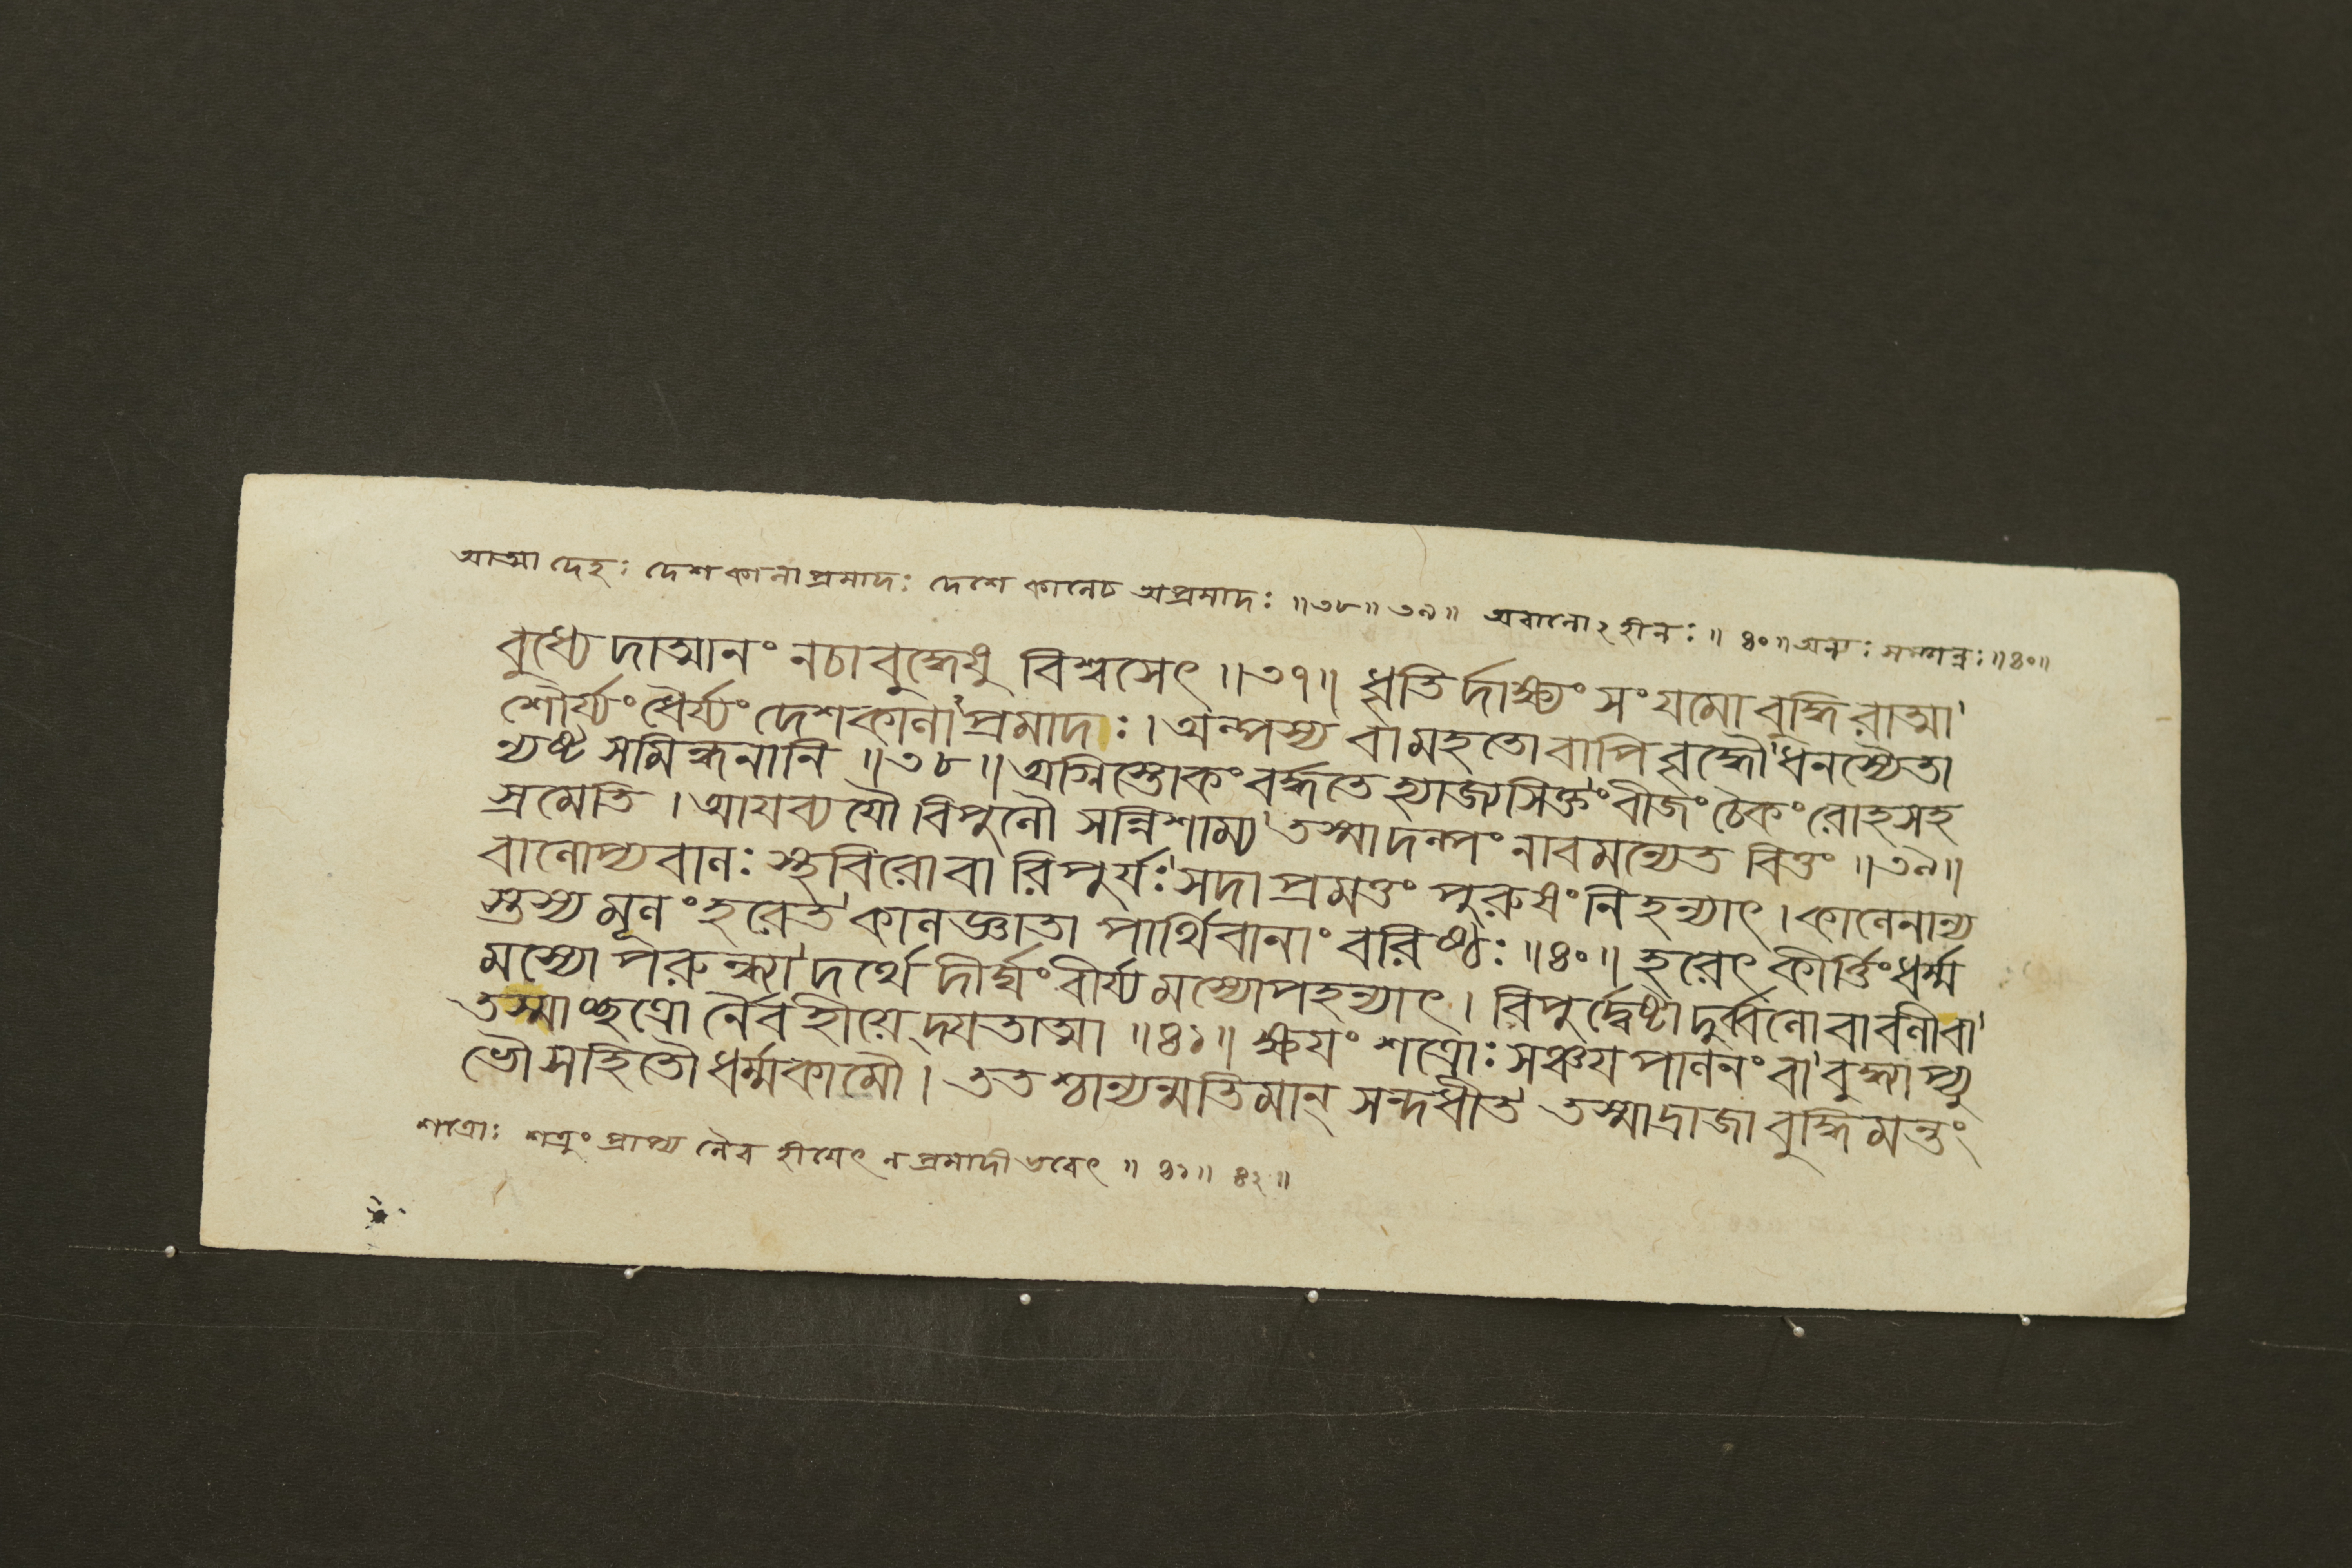 আত্মা দেহঃ দেশকালাপ্রমাদঃ দেশে কালেচ অপ্রমাদঃ ॥৩৮॥৩৯॥ অবালোঽহীনঃ ॥৪০॥ অন্যঃ সম্পন্নঃ ॥৪০॥
বুধ্যেদাত্মানং নচাবুদ্ধেষু বিশ্বসেৎ ॥৩৭॥ ধৃতির্দাক্ষ্যং সংযমো বুদ্ধিরাত্মা'
শৌর্য্যং ধৈর্য্যং দেশকালা'প্রমাদঃ। অল্পস্য বা মহতো বাপি বৃদ্ধৌ'ধনস্যৈতা
ন্যষ্ট সমিন্ধনানি ॥৩৮॥ অগ্নিস্তোকং বর্দ্ধতে হ্যাজ্যসিক্তং'বীজং চৈকং রোহসহ
স্রমেতি। আযব্যযৌ বিপুলৌ সন্নিশাম্য'তস্মাদল্পং নাবমন্যেত বিত্তং ॥৩৯॥
বালোপ্যবালঃ স্থবিরোবা রিপুর্যঃ'সদা প্রমত্তং পুরুষং নিহন্যাৎ। কালেনান্য
স্তস্য মূলং হরেত'কালজ্ঞাতা পার্থিবানাং বরিষ্ঠঃ ॥৪০॥ হরেৎ কীর্ত্তিং ধর্ম্ম
মস্যোপরুন্ধ্যা'দর্থে দীর্ঘং বীর্য্যমস্যোপহন্যাৎ। রিপুর্দ্বেষ্টা দুর্ব্বলোবা বলীবা'
তস্মাচ্ছত্রো র্নৈব হীয়েদ্যতাত্মা ॥৪১॥ ক্ষযং শত্রোঃ সঞ্চয পালনং বা'বুদ্ধ্বাপ্যু
ভৌ সহিতৌ ধর্ম্মকামৌ। ততশ্চান্যন্মতিমান্ সন্দধীত'তস্মাদ্রাজা বুদ্ধিমন্তং
শত্রোঃ শত্রুং প্রাপ্য নৈব হীযেৎ ন প্রমাদী ভবেৎ ॥৪১॥৪২॥